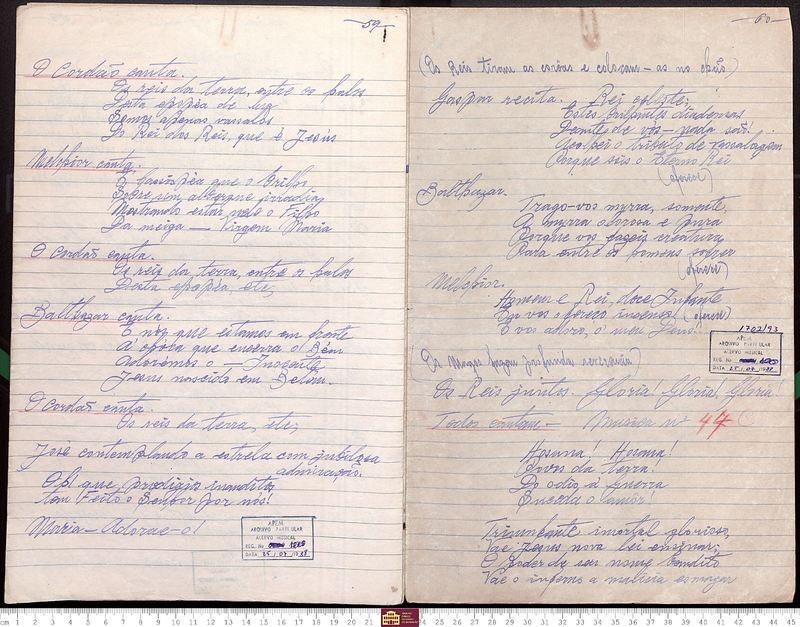 59
O Cordão canta.
Os reis da terra, entre os halos
Desta epopéa de luz
Somos apenas vassalos
Do Rei dos Reis, que é Jesus
Melchior canta.
que o Brilho
Sobre um albergue irradia
Mostrando estar nelle o Filho
Da meiga — Virgem Maria
O cordão canta.
Os reis da terra, entre os halos
Desta epopéa etc,
Balthazar canta.
E nós que estamos em frente
A que encerra o Bem
Adoremos o Inocente
Jesus nascido em Belém.
O cordão canta.
Os reis da terra, etc,
José contemplando a estrela com jubilosa
admiração.
Oh! que prodigio inaudito
tem Feito o Senhor por nós!
Maria — Adorae-o!
APEM
ARQUIVO PARTICULAR
ACERVO MUSICAL
REG. No
DATA 25 / 07 / 1988
60
(Os Reis tiram as corôas e colocam-as no chão)
Gaspar recita. Rei celeste,
Estes diademas
Deante de vós — nada são!
Recebei o tributo de vassalagem
Porque sois o Eterno Rei
(oferece)
Balthazar.
Trago-vos myrra, somente,
A myrra olorosa e pura
Porque vos fazeis creatura
Para entre os homens sofrer
(oferece)
Melchior.
Homem e Rei, doce Infante
Eu vos ofereço incenso (oferece)
E vos adoro, o' meu Deus!!
1702/93
APEM
ARQUIVO PARTICULAR
ACERVO MUSICAL
REG. No
DATA 25 / 07 / 1988
(Os Magos fazem profunda reverencia)
Os Reis juntos. Gloria! Gloria! Gloria
Todos cantam — Musica nº 47
Hosana! Hosana!
Povos da terra!
Do odio, á guerra
Suceda o amor!
Triumfante imortal glorioso,
Vae Jesus nova lei ensinar;
O poder de seu nome bemdito
Vae o inferno a malicia esmagar